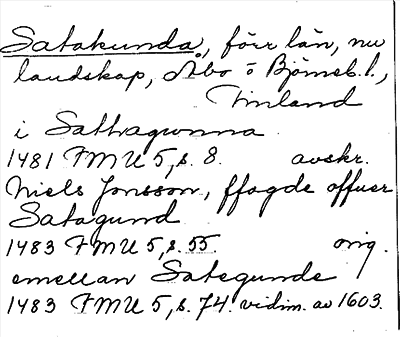 Satakunda, förr län, nu
landskap, Åbo o Björneb. l.,
Finland
i Sathagwnna
1481 FMU 5, s. 8. avskr.
Niels Jonsson, ffogde offuer
Satagund
1483 FMU 5, s. 55. orig.
emellan Sategunde
1483 FMU 5, s. 74. vidim. av 1603.